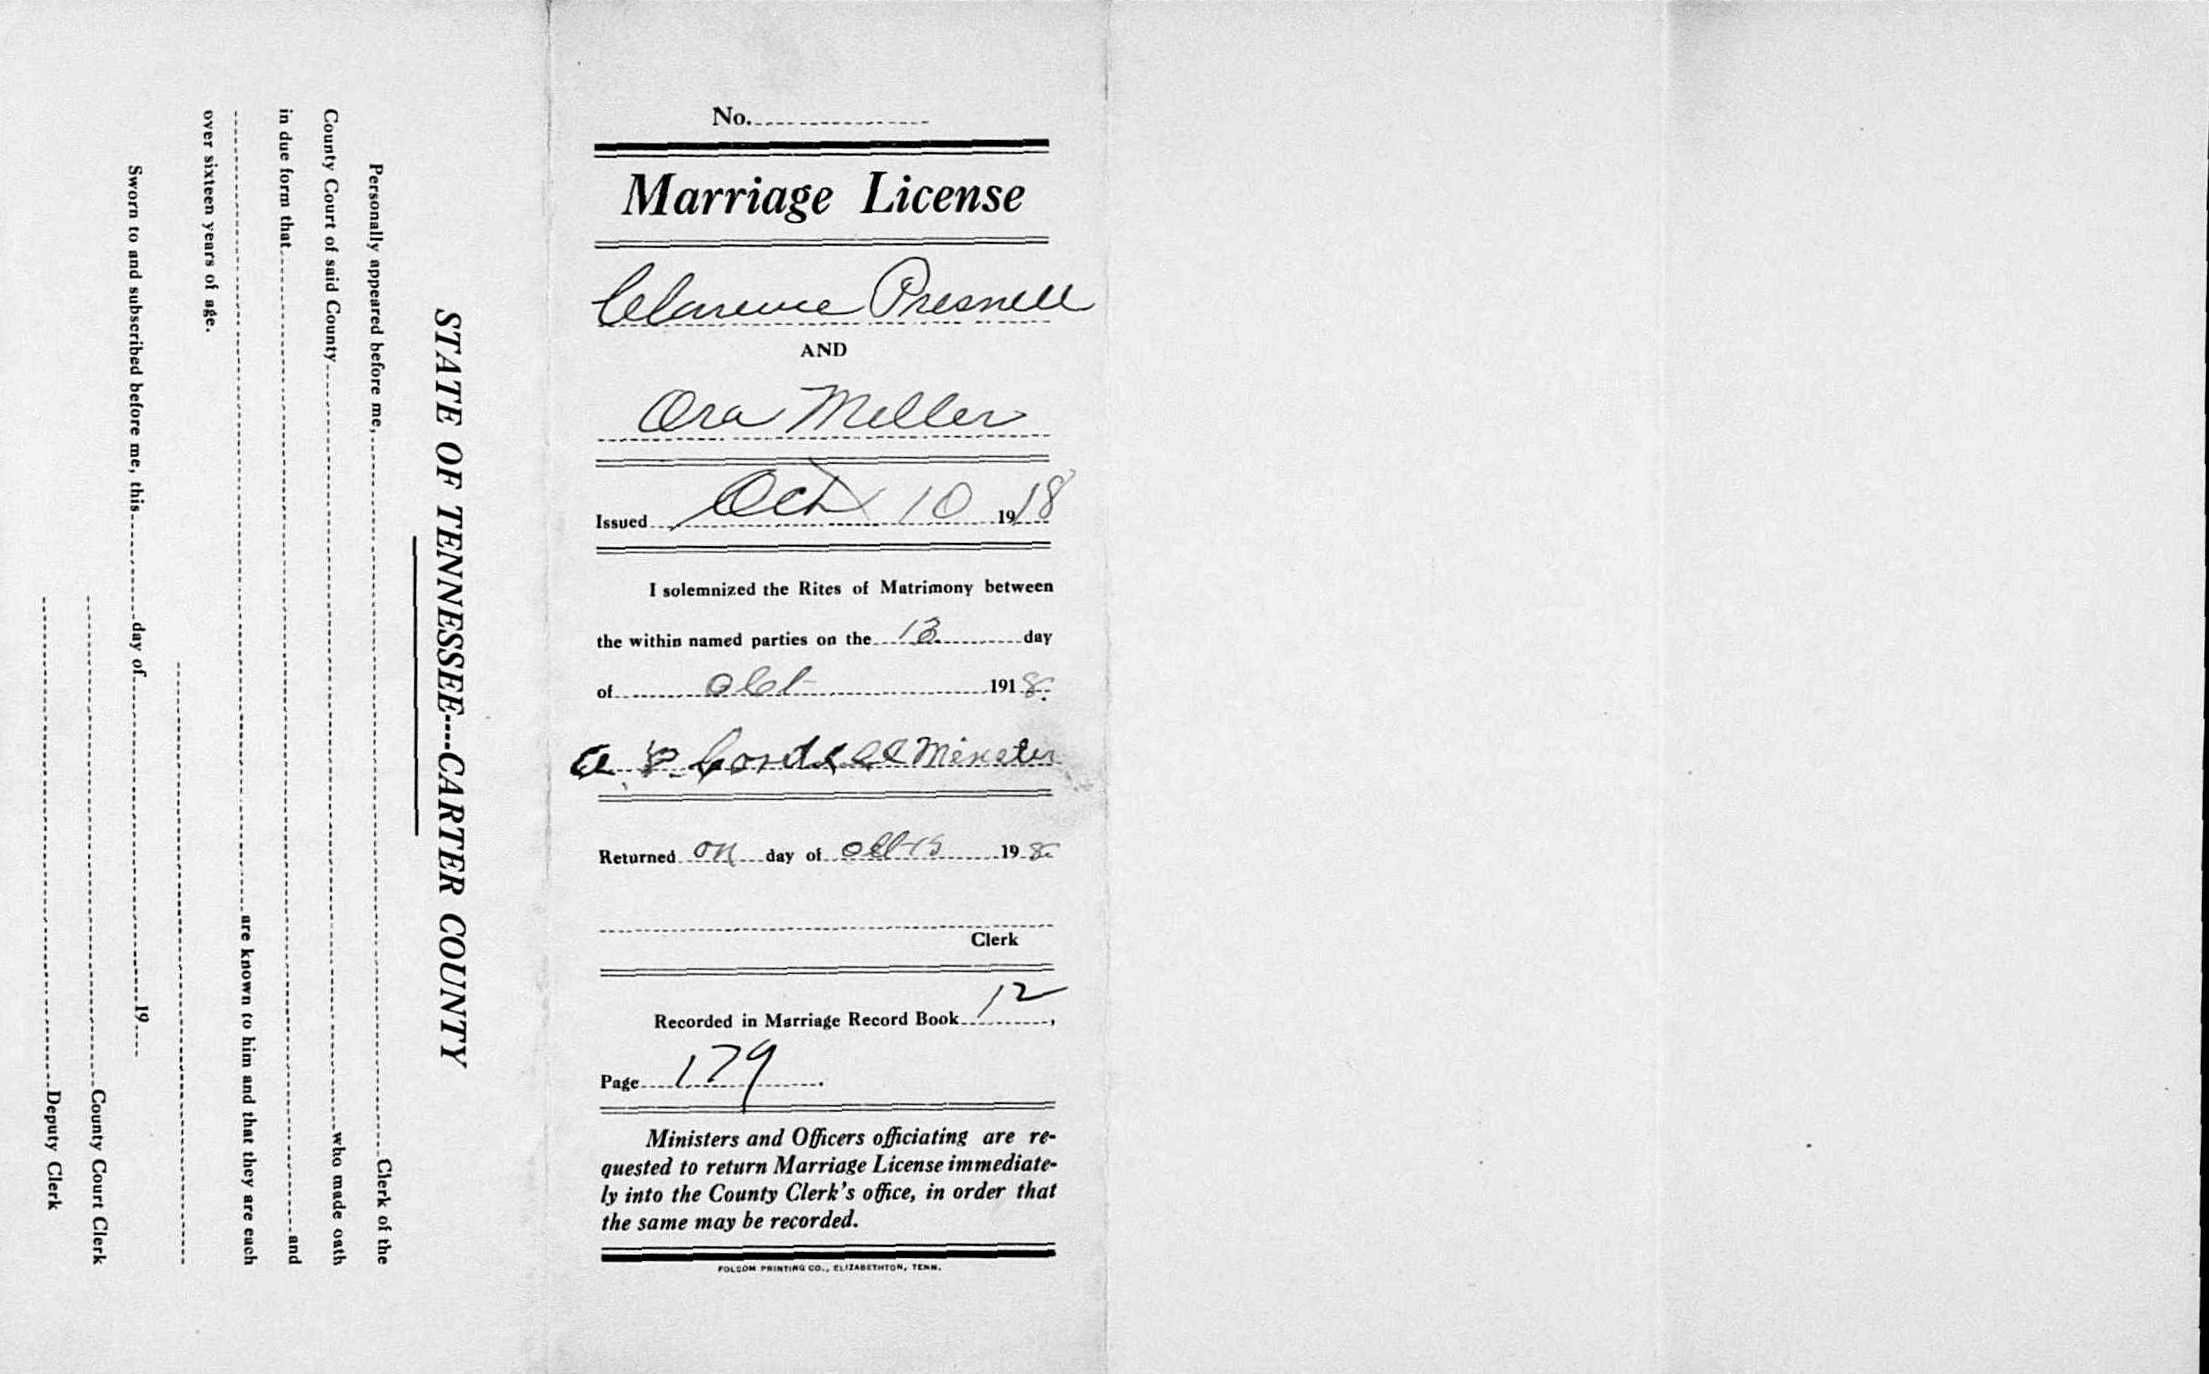 STATE OF TENNESSEE----CARTER COUNTY
Personally appeared before me, Clerk of the
County Court of said County who made oath
in due form that and
are known to him and that they are each
over sixteen years of age.
Sworn to and subscribed before me, this day of 19
County Court Clerk
Deputy Clerk
No.
Marriage License
Clarence Presnell
AND
Ora Miller
Issued Oct 10 1918
I solemnized the Rites of Matrimony between
the within named parties on the 13 day
of Oct 1918.
Minster
Returned on day of Oct 15 19 8
Clerk
Recorded in Marriage Record Book 12,
Page 179.
Ministers and Officers officiating are re-
quested to return Marriage License immediate-
ly into the County Clerk's office, in order that
the same may be recorded.
FOLSOM PRINTING CO., ELIZABETHTON, TENN.